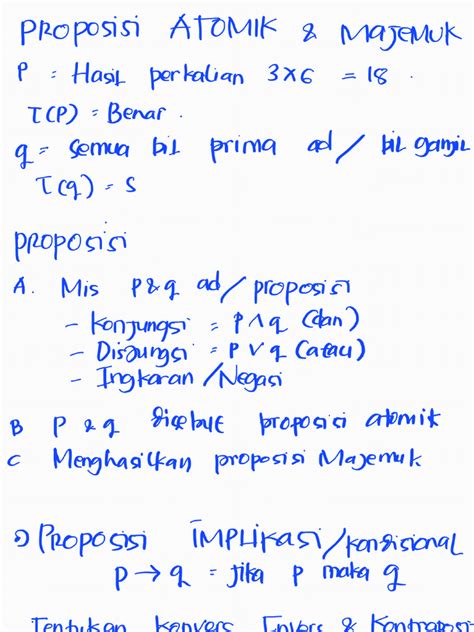 PROPOSISI ATOMIK & MAJEMUK
P = Hasil perkalian 3x6 = 18.
T(P) = Benar.
q = semua bil prima ad/ bil ganjil
T(q) = S
PROPOSISI
A. Mis p&q ad/proposisi
- Konjungsi = P ∧ q (dan)
- Disjungsi = P ∨ q (atau)
- Ingkaran/Negasi
B P & q disebut proposisi atomik
C Menghasilkan proposisi Majemuk
PROPOSISI IMPLIKASI/kondisional
p → q = jika p maka q
Tentukan konvers Invers & Kontraposi